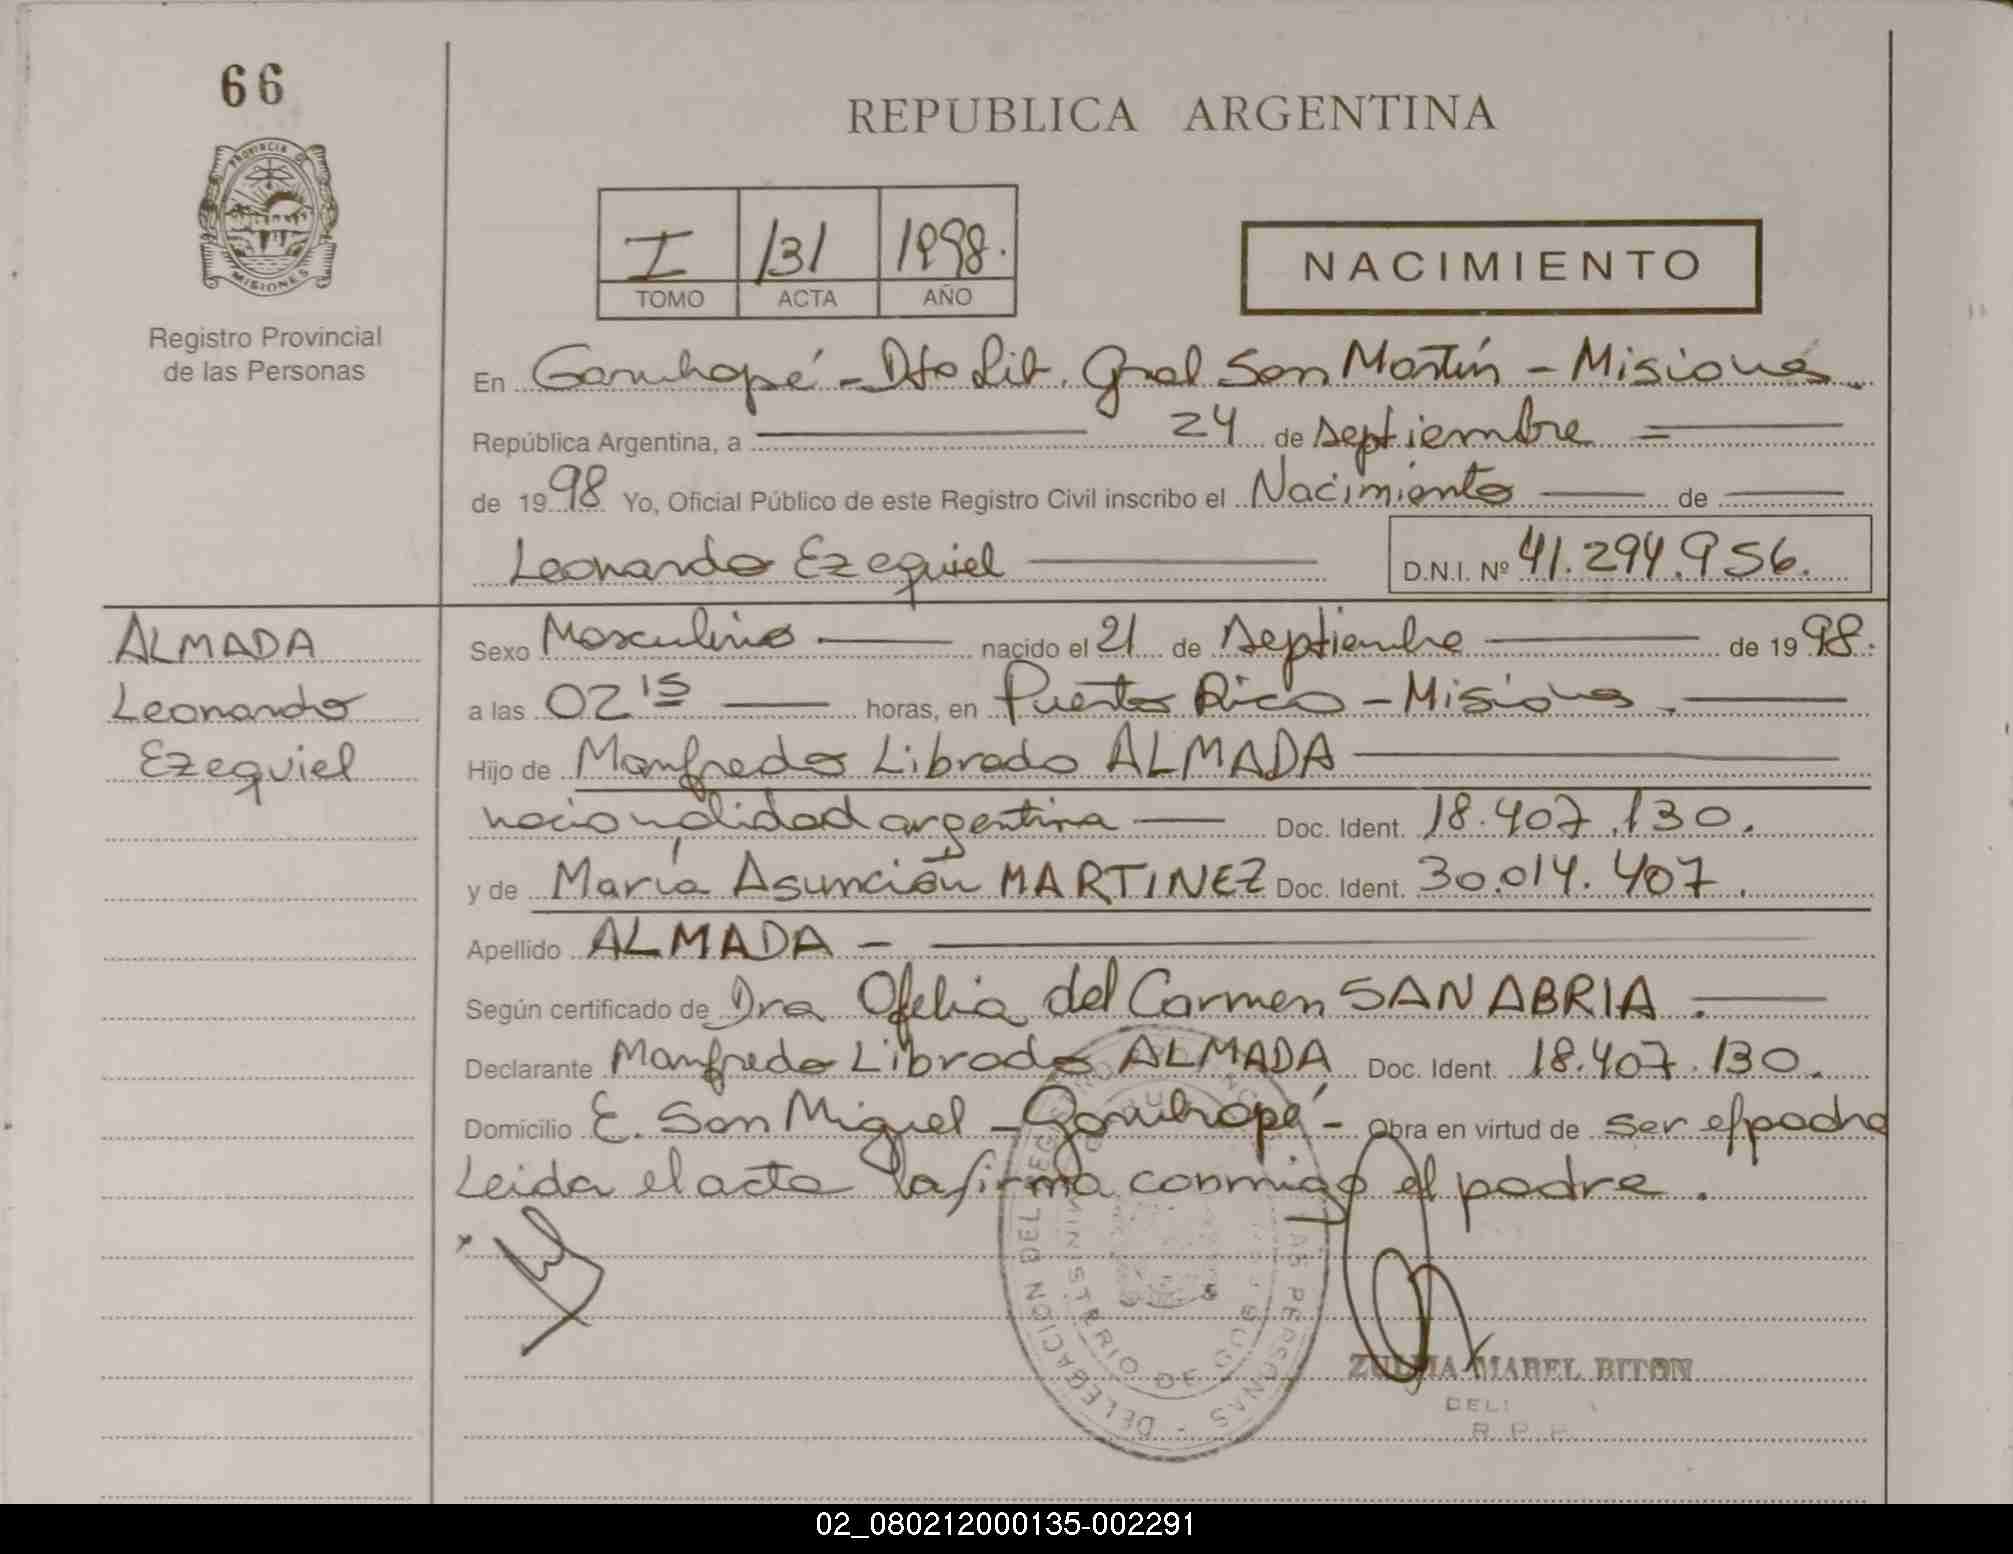 66
REPUBLICA ARGENTINA
PROVINCIA DE
MISIONES
Registro Provincial
de las Personas
I 131 1998.
TOMO ACTA AÑO
NACIMIENTO
En Garuhapé - Dto Lib. Gral San Martín - Misiones.
República Argentina, a 24 de septiembre
de 1998 Yo, Oficial Público de este Registro Civil inscribo el Nacimiento de
Leonardo Ezequiel D.N.I. Nº 41.294.956.
ALMADA
Leonardo
Ezequiel
Sexo Masculino nacido el 21 de septiembre de 1998.
a las 02 15 horas, en Puerto Rico - Misiones.
Hijo de Manfredo Librado ALMADA
nacionalidad argentina Doc. Ident. 18.407.130.
y de María Asunción MARTINEZ Doc. Ident. 30.014.407.
Apellido ALMADA -
Según certificado de Dra Ofelia del Carmen SANABRIA.
Declarante Manfredo Librado ALMADA Doc. Ident. 18.407.130.
Domicilio E. San Miguel - Garuhapé - Obra en virtud de ser el padre
Leida el acta la firma conmigo el padre.
x
DELEGACION DEL PERSONAS
MINISTERIO DE
MABEL BITON
R. P. P.
02_080212000135-002291